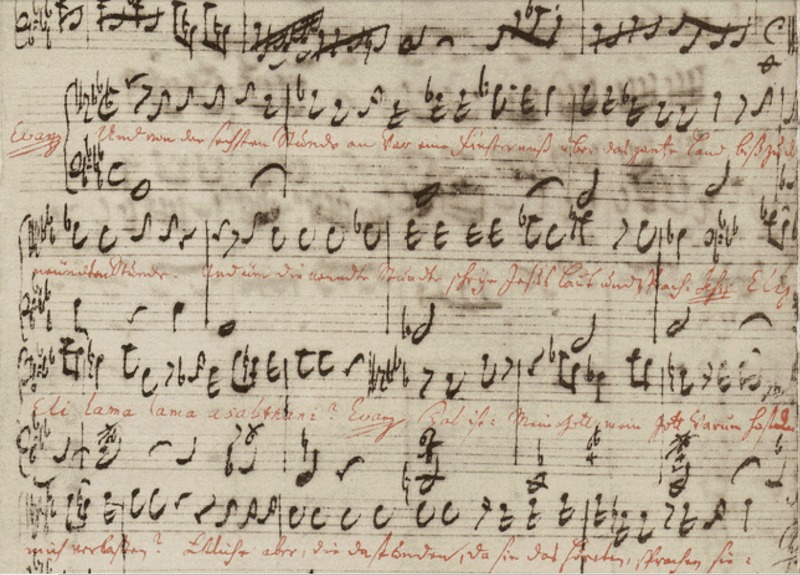 Evang Und von der sechsten Stunde an war eine Finsternuß über das gantze Land biß zu d
neundten Stunde. Und um die neundte Stunde schrye Jesus laut und sprach: Jesus Eli,
Eli lama lama asabthani? Evang Das ist: Mein Gott, mein Gott warum hastu
mich verlassen? Etliche aber, die da stunden, da sie das höreten, sprachen sie: